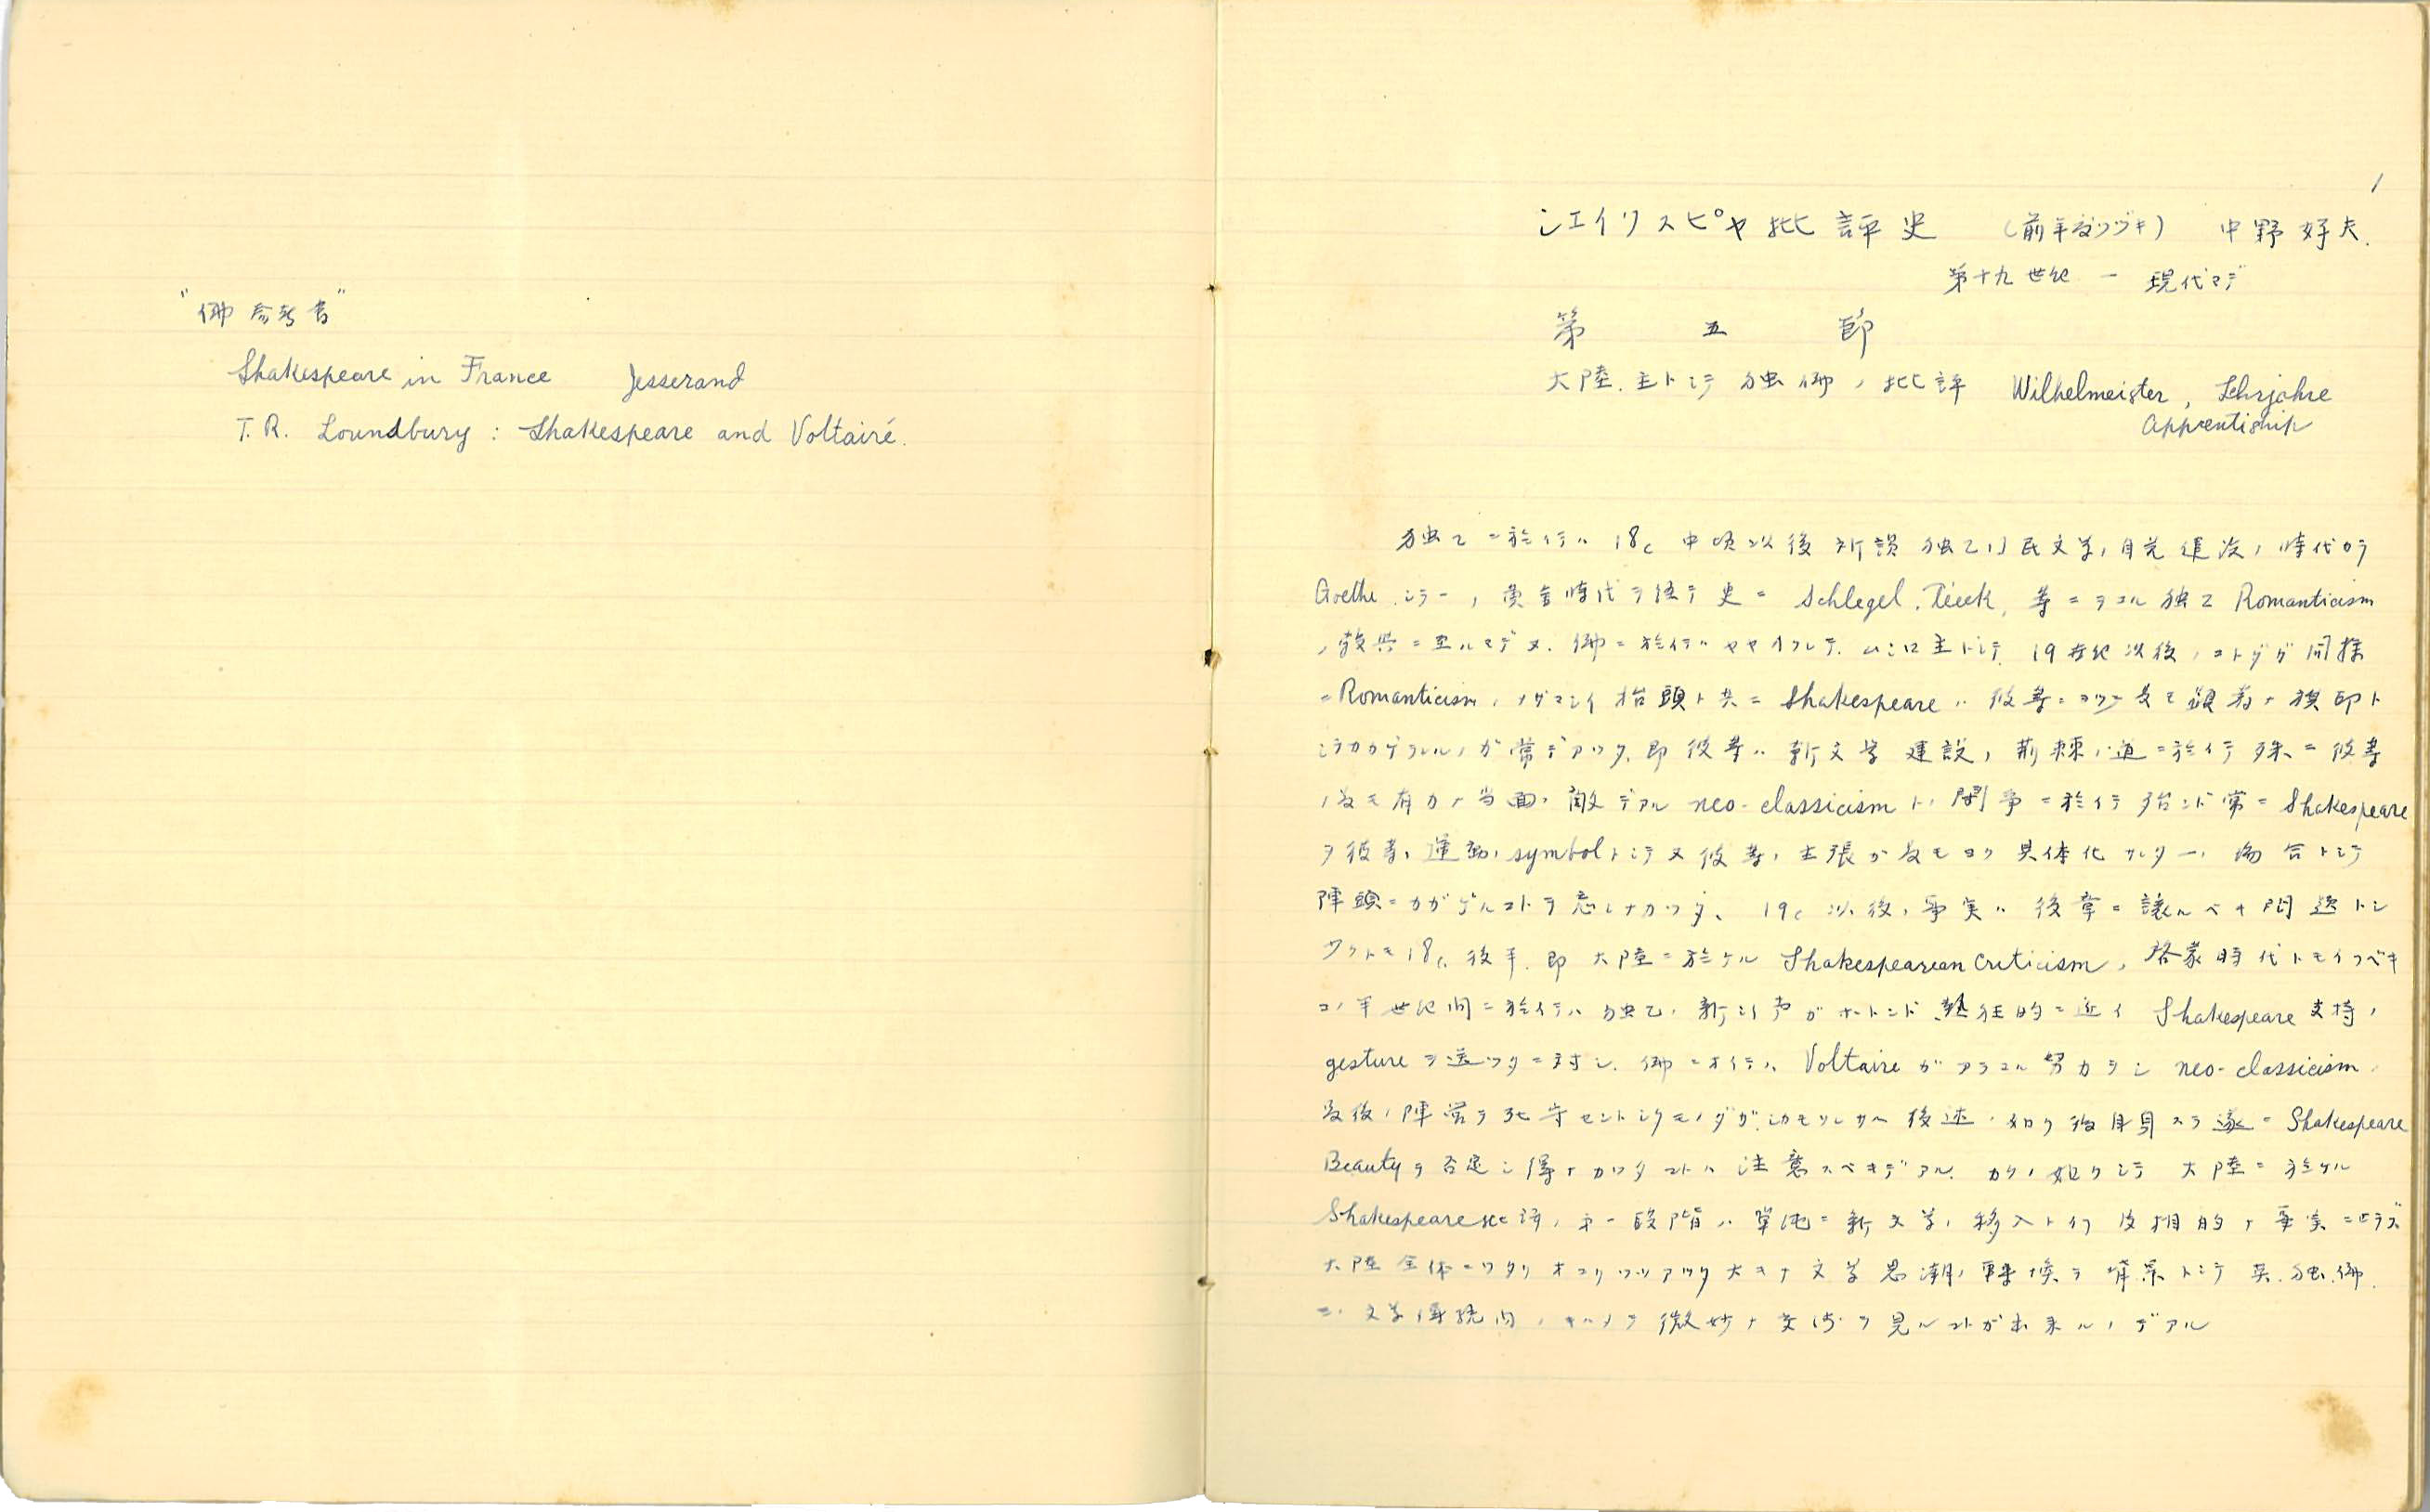 "佛参考書"
Shakespeare in France Jesserand
T. R. Loundbury : Shakespeare and Voltairé.
1
シエイクスピヤ批評史 (前年度ツヅキ) 中野好夫.
第十九世紀 ー 現代マデ
第 五 節
大陸.主トシテ独佛ノ批評 Wilhelmeister, Lehrjahre
Apprentiship
独乙ニ於イテハ 18c 中頃以後所謂独乙国民文学ノ自覚運流ノ時代カラ
Goethe.シラーノ黄金時代ヲ経テ更ニ Schlegel.Tieck,等ニヨル独乙 Romanticism
ノ勃興ニ至ルマデヌ.佛ニ於イテハヤヤオクレテ.ムシロ主トシテ 19世紀以後ノコトダガ同様
ニRomanticismノメザマシイ抬頭ト共ニ Shakespeareハ彼等ニヨツテ最モ顕著ナ旗印ト
シテカカゲラレルノガ常デアツタ.即彼等ハ新文学建設ノ荊棘ノ道ニ於イテ殊ニ彼等
ノ最モ有力ナ当面ノ敵デアル neo-classicismトノ闘争ニ於イテ殆ンド常ニShakespeare
ヲ彼等ノ運動ノsymbolトシテ又彼等ノ主張ガ最モヨク具体化サレターノ場合トシテ
陣頭ニカカゲルコトヲ忘レナカツタ、 19c以後ノ事実ハ後章ニ譲ルベキ問題トシ
少クトモ18c.後半.即大陸ニ於ケル Shakespearean Criticismノ啓蒙時代トモイフベキ
コノ半世紀間ニ於イテハ独乙ノ新シイ声ガホトンド熱狂的ニ近イ Shakespeare支持ノ
gestureヲ送ツタニ対シ.佛ニオイテハ Voltaireガアラユル努力ヲシ neo-classicismノ
最後ノ陣営ヲ死守セントシタモノダガ.シカモソレサヘ後述ノ如ク彼自身スラ遂ニShakespeare
Beautyヲ否定シ得ナカツタコトハ注意スベキデアル.カクノ如クシテ大陸ニ於ケル
Shakespeare批評ノ第一段階ハ単純ニ新文学ノ移入トイフ皮相的ナ事実ニ止ラズ
大陸全体ニワタリオコリツツアツタ大キナ文学思潮ノ転換ヲ背景トシテ英.独.佛.
三ノ文学傳統内ノキハメテ微妙ナ交渉ヲ見ルコトガ出来ルノデアル